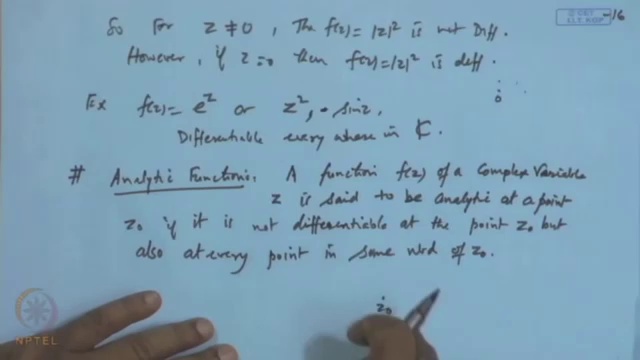 © CET
I.I.T. KGP
-16
So For z ≠ 0, The f(z) = |z|² is not Diff.
However, if z = 0 then f(z) = |z|² is diff.
Ex f(z) = e^z or z², sin z,
Differentiable every where in ℂ.
# Analytic Function: A function f(z) of a Complex Variable
z is said to be analytic at a point
z₀ if it is not differentiable at the point z₀ but
also at every point in some nbd of z₀.
z₀
NPTEL